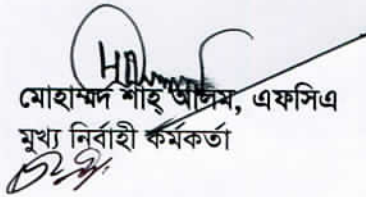 মোহাম্মদ শাহ্ আলম, এফসিএ
মুখ্য নির্বাহী কর্মকর্তা